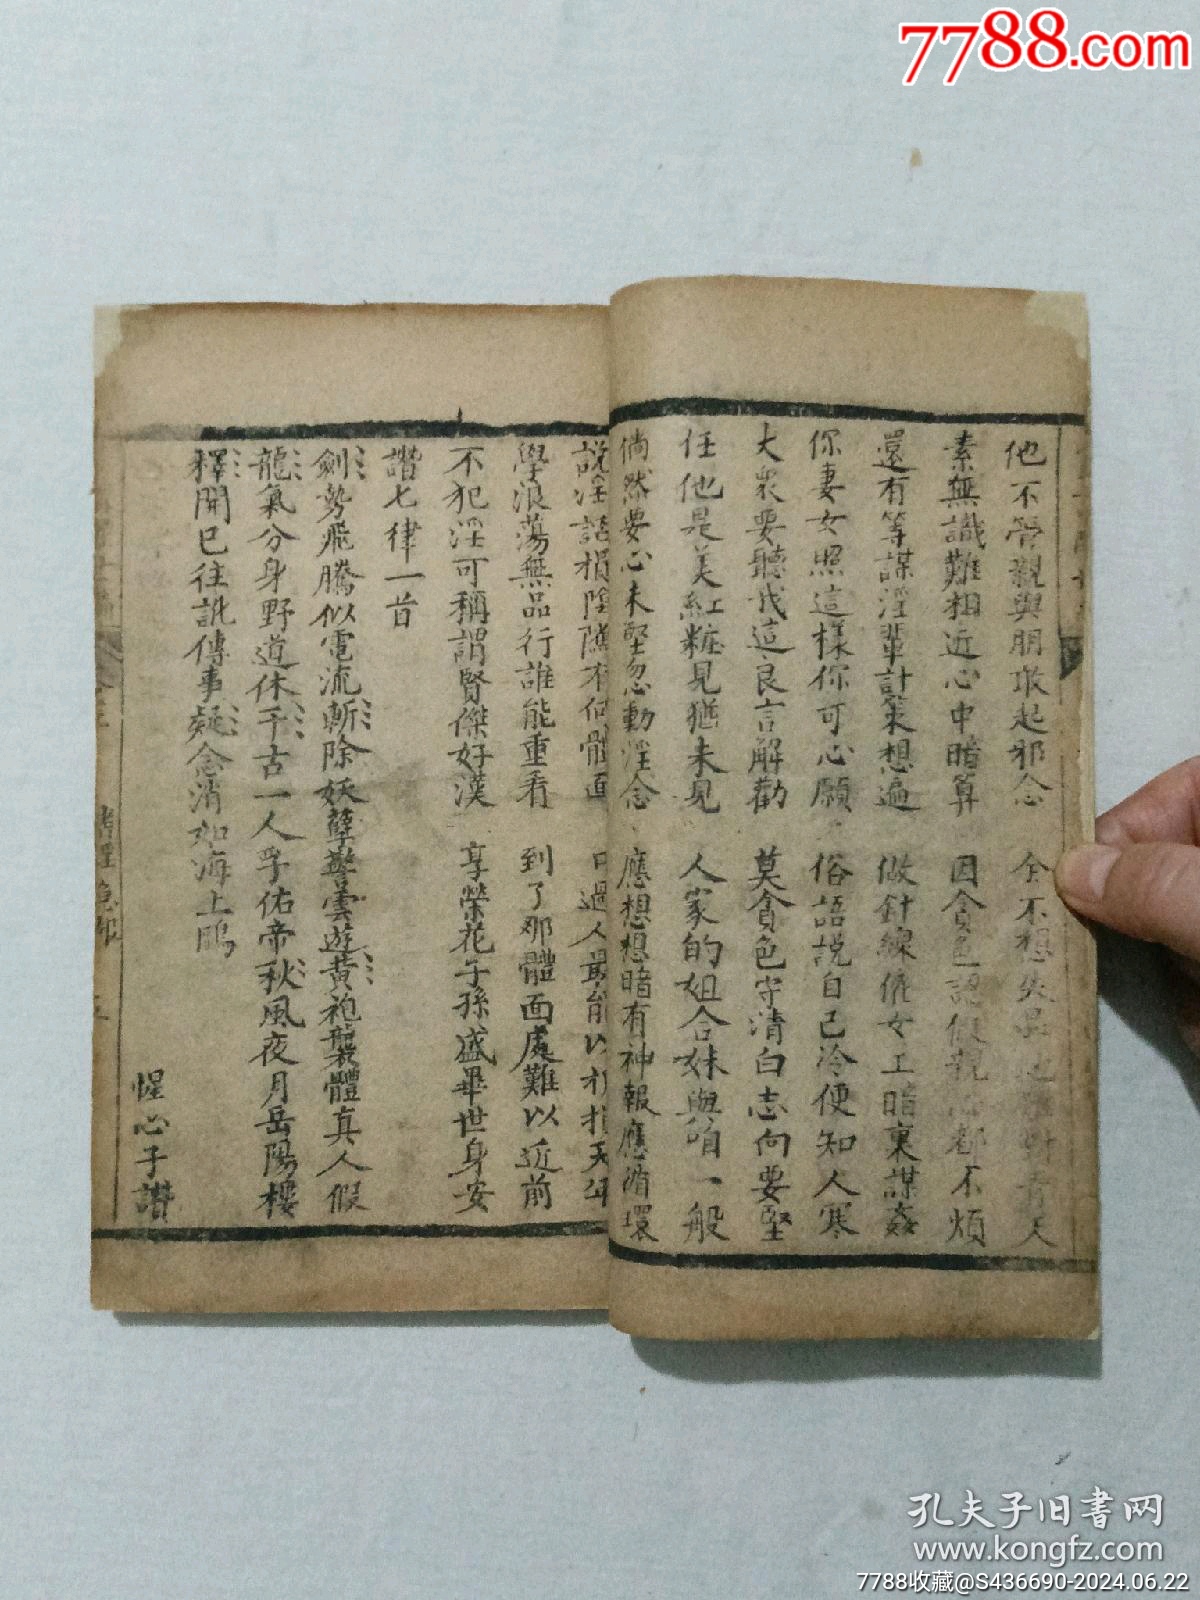 7788.com
他不管親與朋敢起邪念 全不想失 天
素無識難相近心中暗算 因貪色認假親 都不煩
還有等謀淫輩計策想遍 做針線催女工暗裏謀姦
你妻女照這樣你可心願 俗語説自己冷便知人寒
大衆要聽我這良言解勸 莫貪色守清白志向要堅
任他是美紅粧見猶未見 人家的姐合妹與咱一般
倘然要心未堅忽動淫念 應想想暗有神報應循環
説淫話損陰隲有何體面 口過人最能 折損天年
學浪蕩無品行誰能重看 到了那體面處難以近前
不犯淫可稱謂賢傑好漢 享榮花子孫盛畢世身安
讚七律一首
劍勢飛騰似電流斬除妖孽擧雲遊黃袍襲體真人假
龍氣分身野道休千古一人孚佑帝秋風夜月岳陽樓
釋開已往訛傳事疑念消如海上鷗
惺心子讚
孔夫子旧书网
www.kongfz.com
7788收藏@S436690-2024.06.22